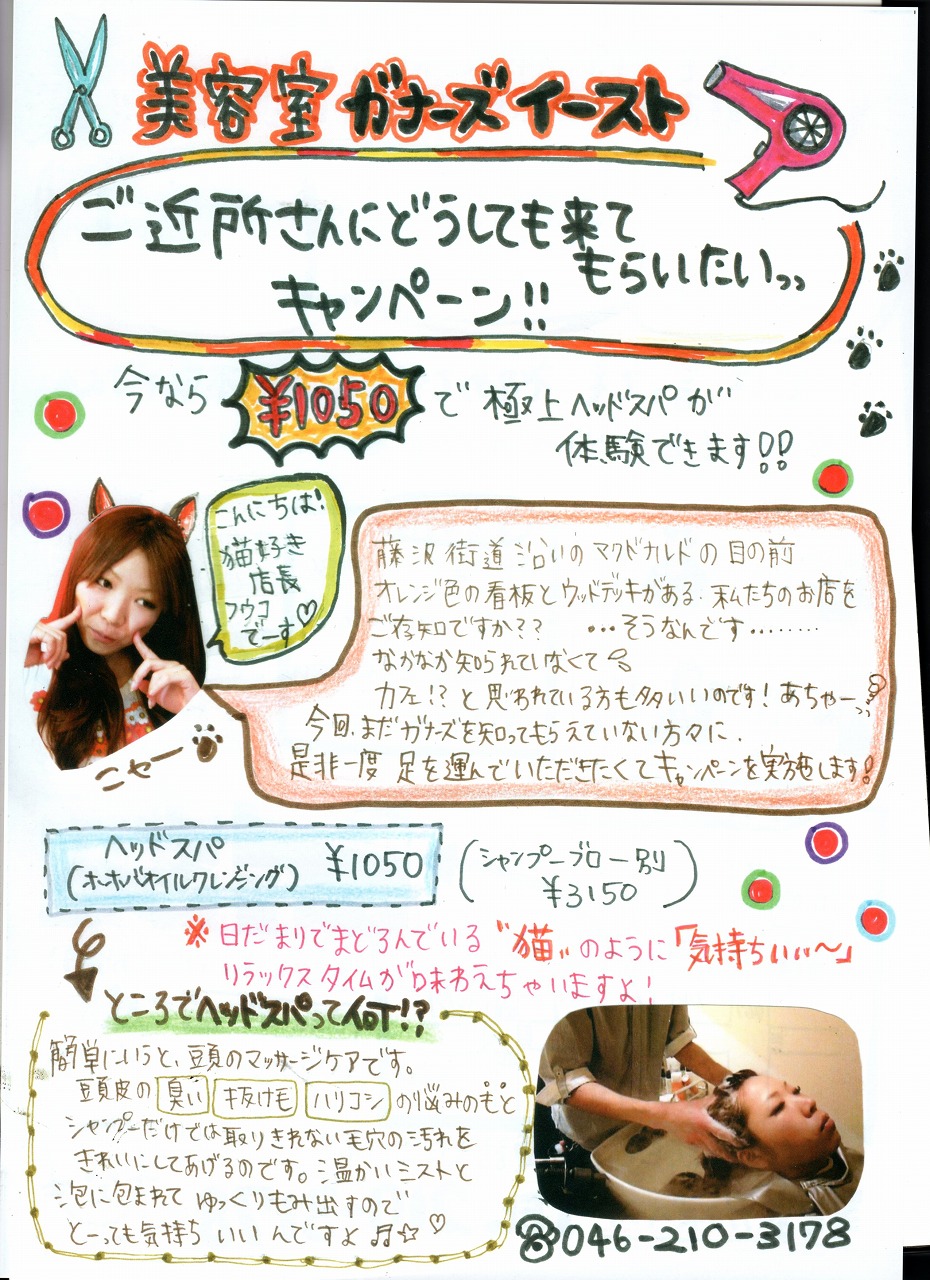 美容室 ガナーズイースト
ご近所さんにどうしても来て
もらいたいっっ
キャンペーン!!
今なら ¥1050 で 極上ヘッドスパが
体験できます!!
こんにちは!
猫好き
店長
フウコ
でーす♡
藤沢街道沿いのマクドナルドの目の前
オレンジ色の看板とウッドデッキがある、私たちのお店を
ご存知ですか?? …そうなんです………
なかなか知られていなくて
カフェ!?と思われている方も多いいのです!あちゃーっっ
今回、まだガナーズを知ってもらえていない方々に、
是非一度 足を運んでいただきたくてキャンペーンを実施します!
ニャー
ヘッドスパ
(ホホバオイルクレンジング) ¥1050
(シャンプーブロー別
¥3150)
※日だまりでまどろんでいる〝猫〟のように「気持ちいい〜」
リラックスタイムが味わえちゃいますよ!
ところでヘッドスパって何!?
簡単にいうと、頭のマッサージケアです。
頭皮の 臭い 抜け毛 ハリコシ の悩みのもと
シャンプーだけでは取りきれない毛穴の汚れを
きれいにしてあげるのです。温かいミストと
泡に包まれて ゆっくりもみ出すので
とーっても気持ち いいんですよ♫☆♡
☎046-210-3178